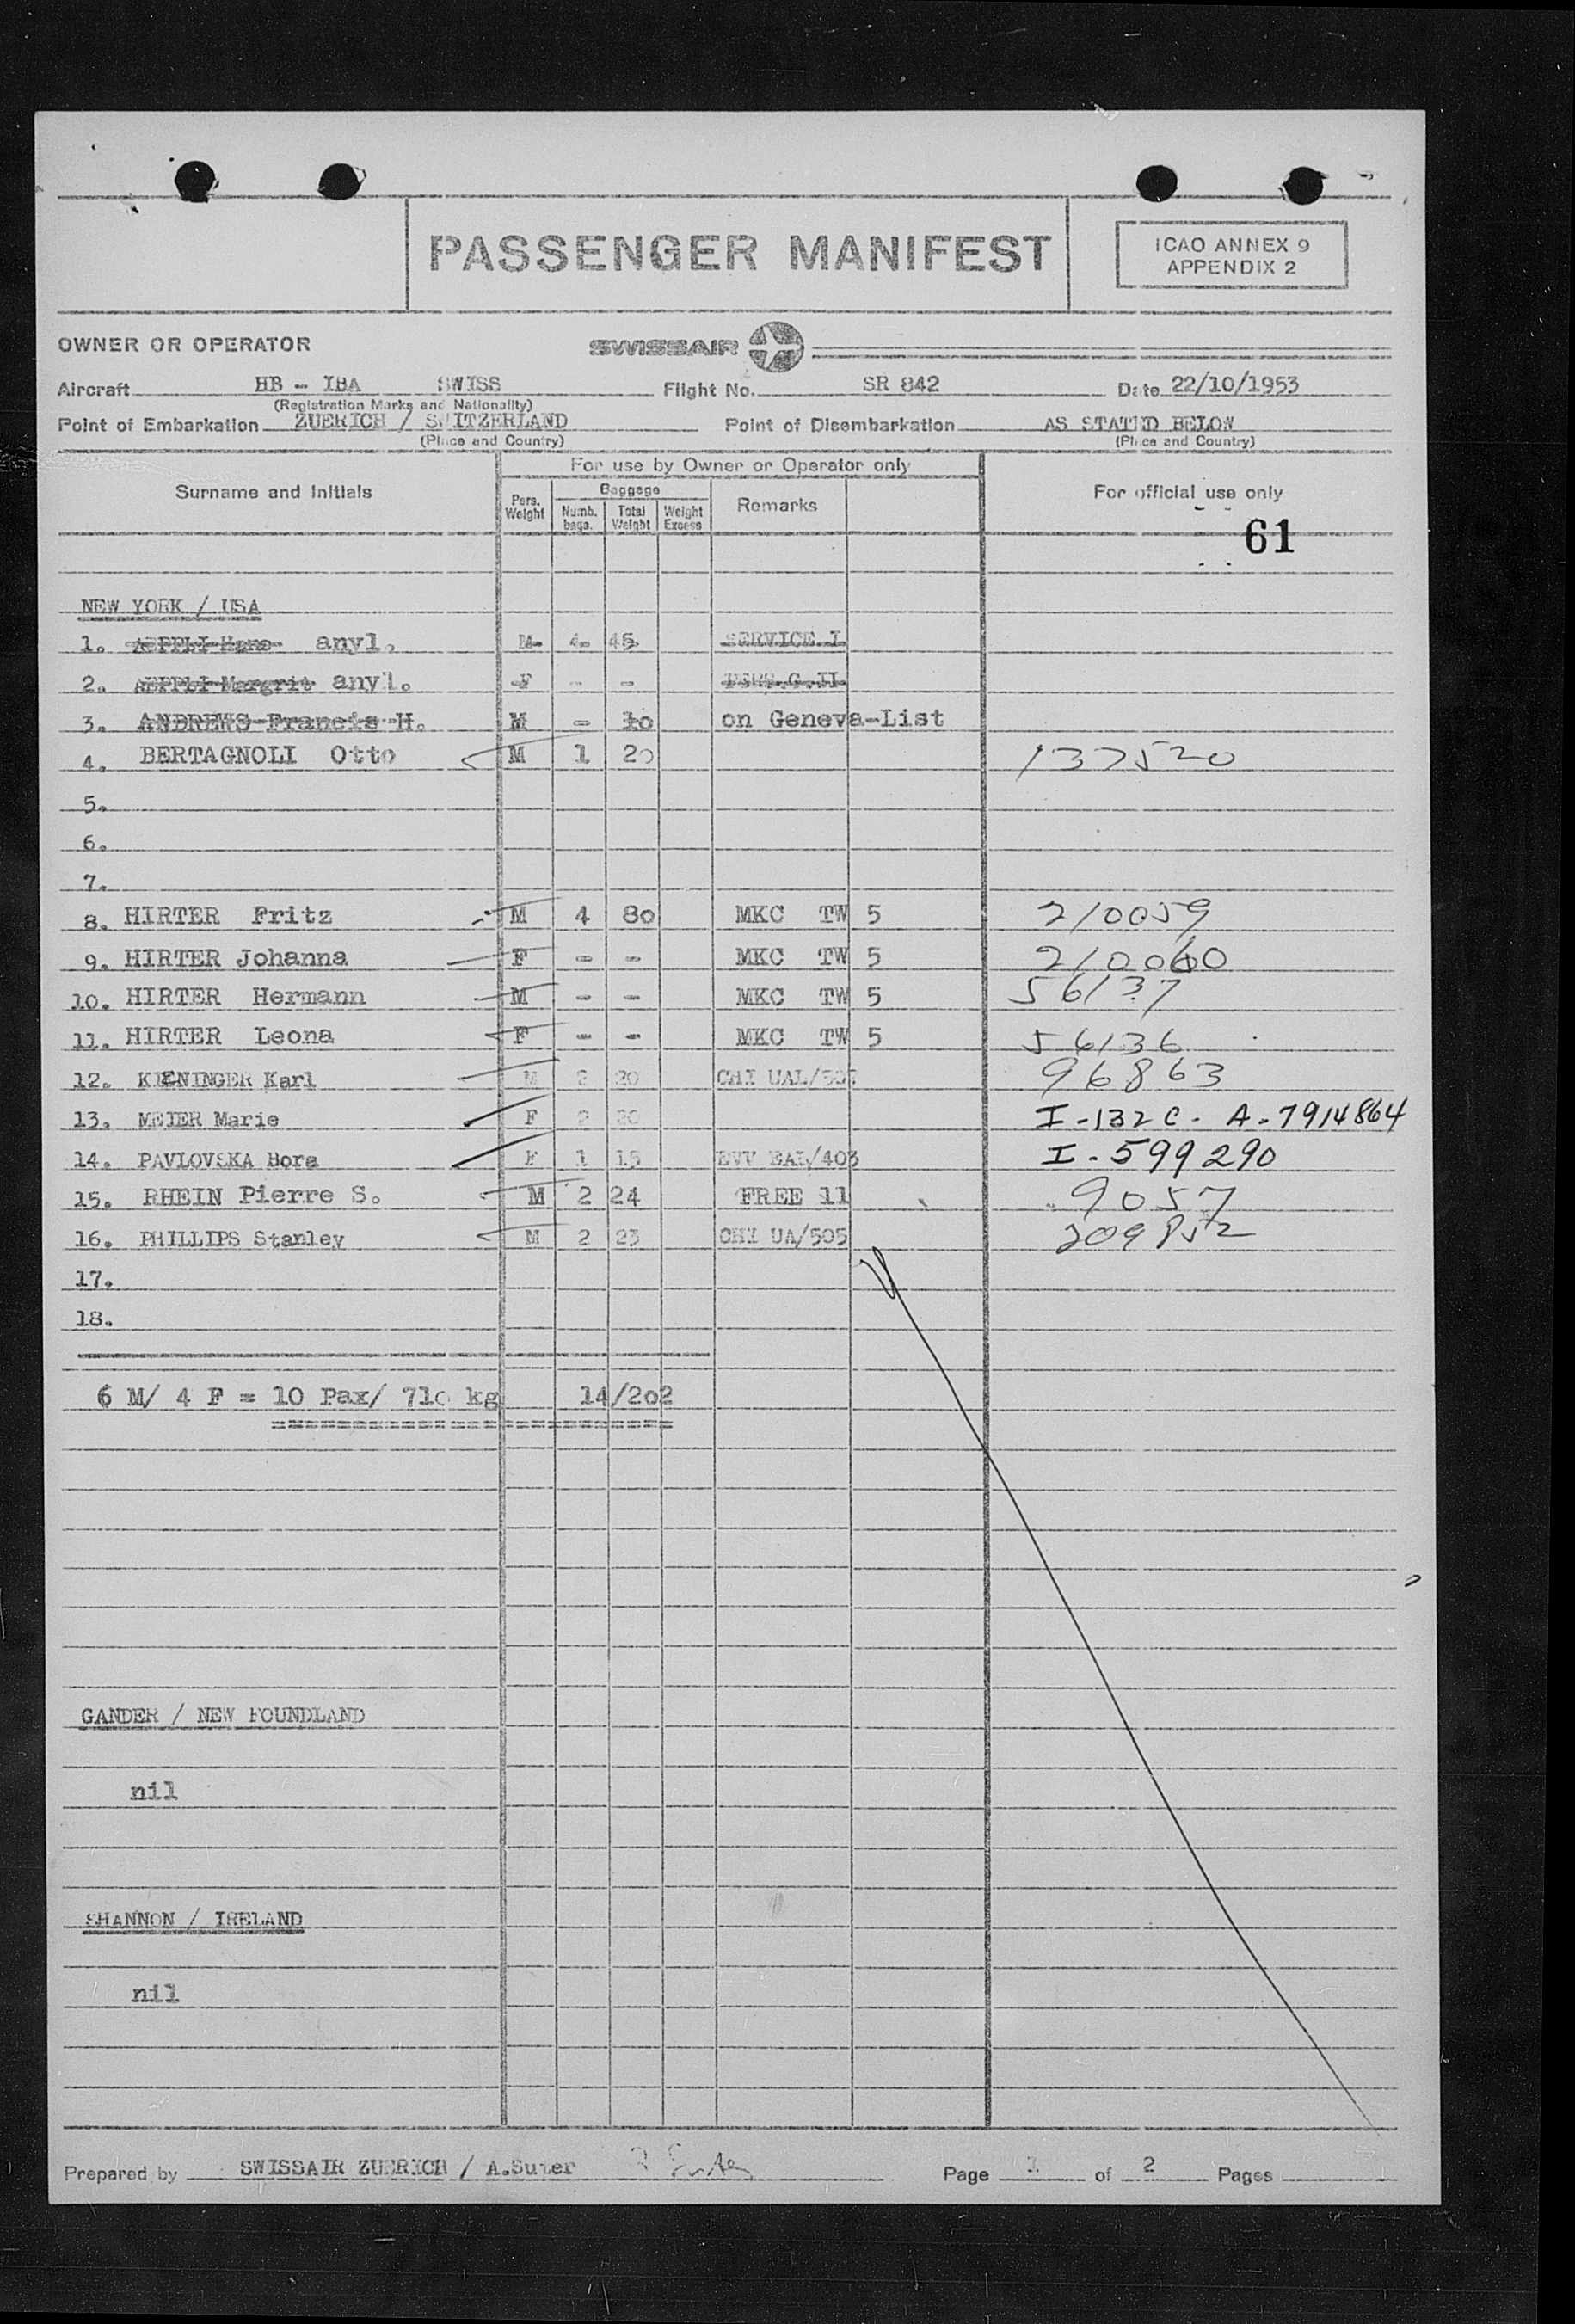 PASSENGER MANIFEST
ICAO ANNEX 9
APPENDIX 2
OWNER OR OPERATOR SWISSAIR
Aircraft HB - IBA SWISS Flight No. SR 842 Date 22/10/1953
(Registration Marks and Nationality)
Point of Embarkation ZUERICH / SWITZERLAND Point of Disembarkation AS STATED BELOW
(Place and Country) (Place and Country)
For use by Owner or Operator only
Surname and Initials Pers. Weight Baggage Numb. bags. Total Weight Weight Excess Remarks For official use only
61
NEW YORK / USA
1. AEPPLI Hans anyl. M 4 45 SERVICE I
2. AEPPLI Margrit anyl. F - -
3. ANDREWS Francis H. M - 10 on Geneva-List
4. BERTAGNOLI Otto M 1 20 137520
5.
6.
7.
8. HIRTER Fritz M 4 80 MKC TW 5 210059
9. HIRTER Johanna F - - MKC TW 5 210060
10. HIRTER Hermann M - - MKC TW 5 56137
11. HIRTER Leona F - - MKC TW 5 56136
12. KIENINGER Karl M 2 20 CHI UAL/ 96863
13. MEIER Marie F 2 20 I-132C- A-7914864
14. PAVLOVSKA Bora F 1 15 EAL/403 I-599290
15. RHEIN Pierre S. M 2 24 FREE 11 9057
16. PHILLIPS Stanley M 2 23 CHI UA/505 209852
17.
18.
6 M/ 4 F = 10 Pax/ 710 kg 14/202
=========================
GANDER / NEW FOUNDLAND
nil
SHANNON / IRELAND
nil
Prepared by SWISSAIR ZUERICH / A.Suter Page 1 of 2 Pages